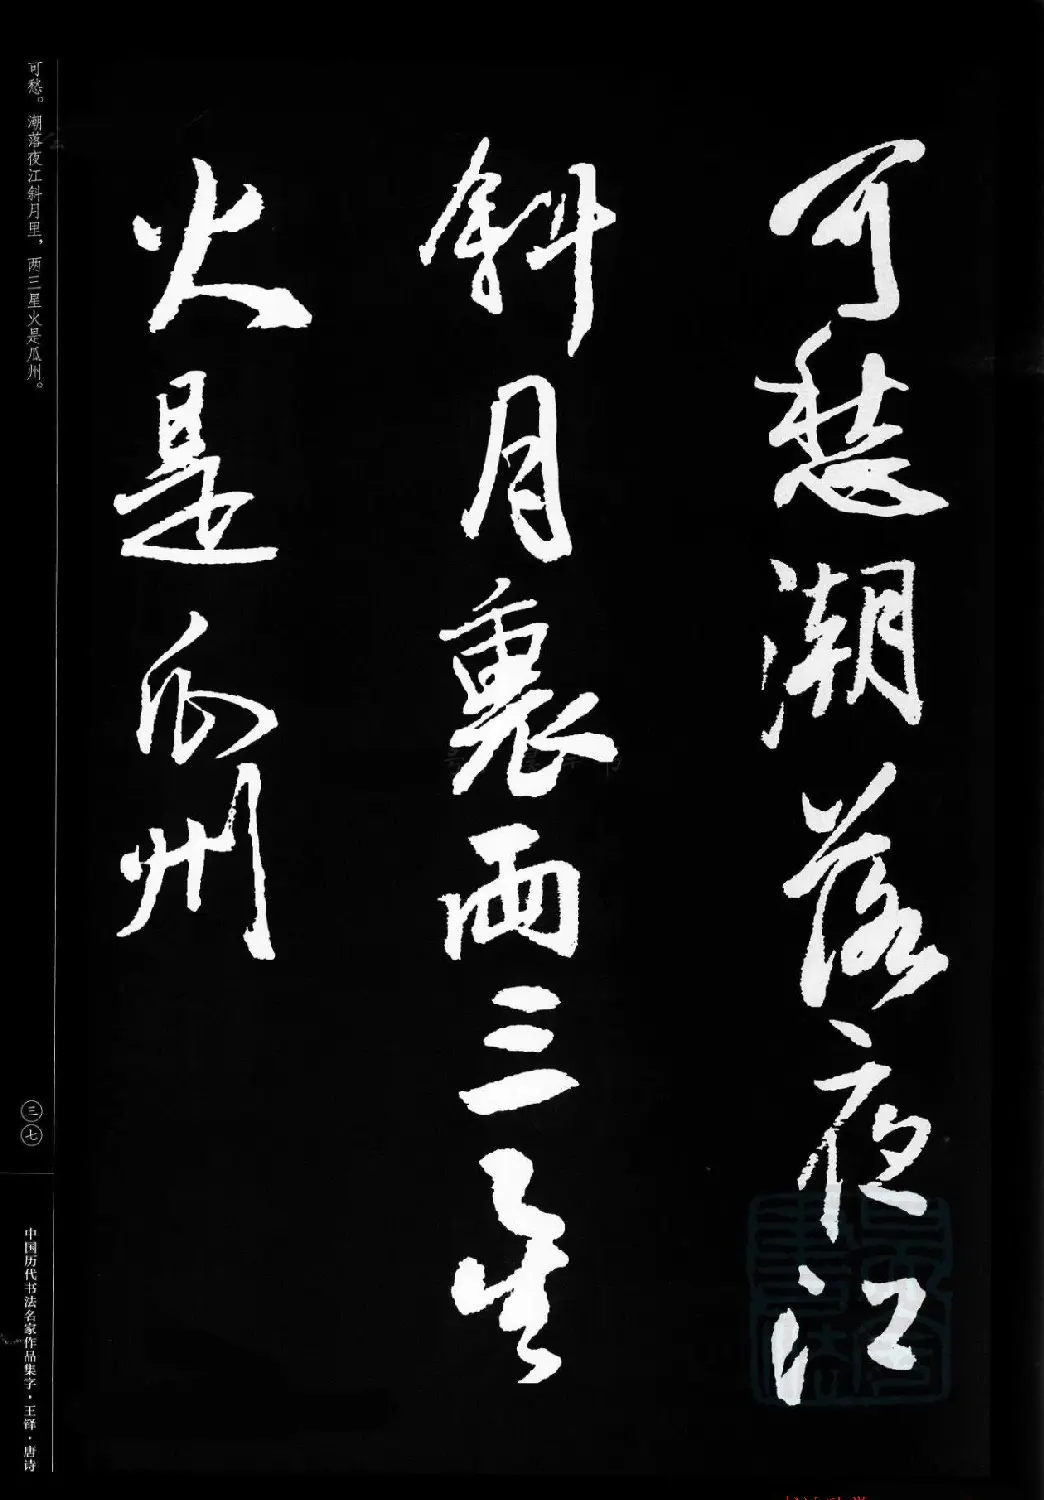 可愁潮落夜江
斜月裏兩三星
火是瓜州
可愁。潮落夜江斜月里，两三星火是瓜州。
三七
中国历代书法名家作品集字·王铎·唐诗